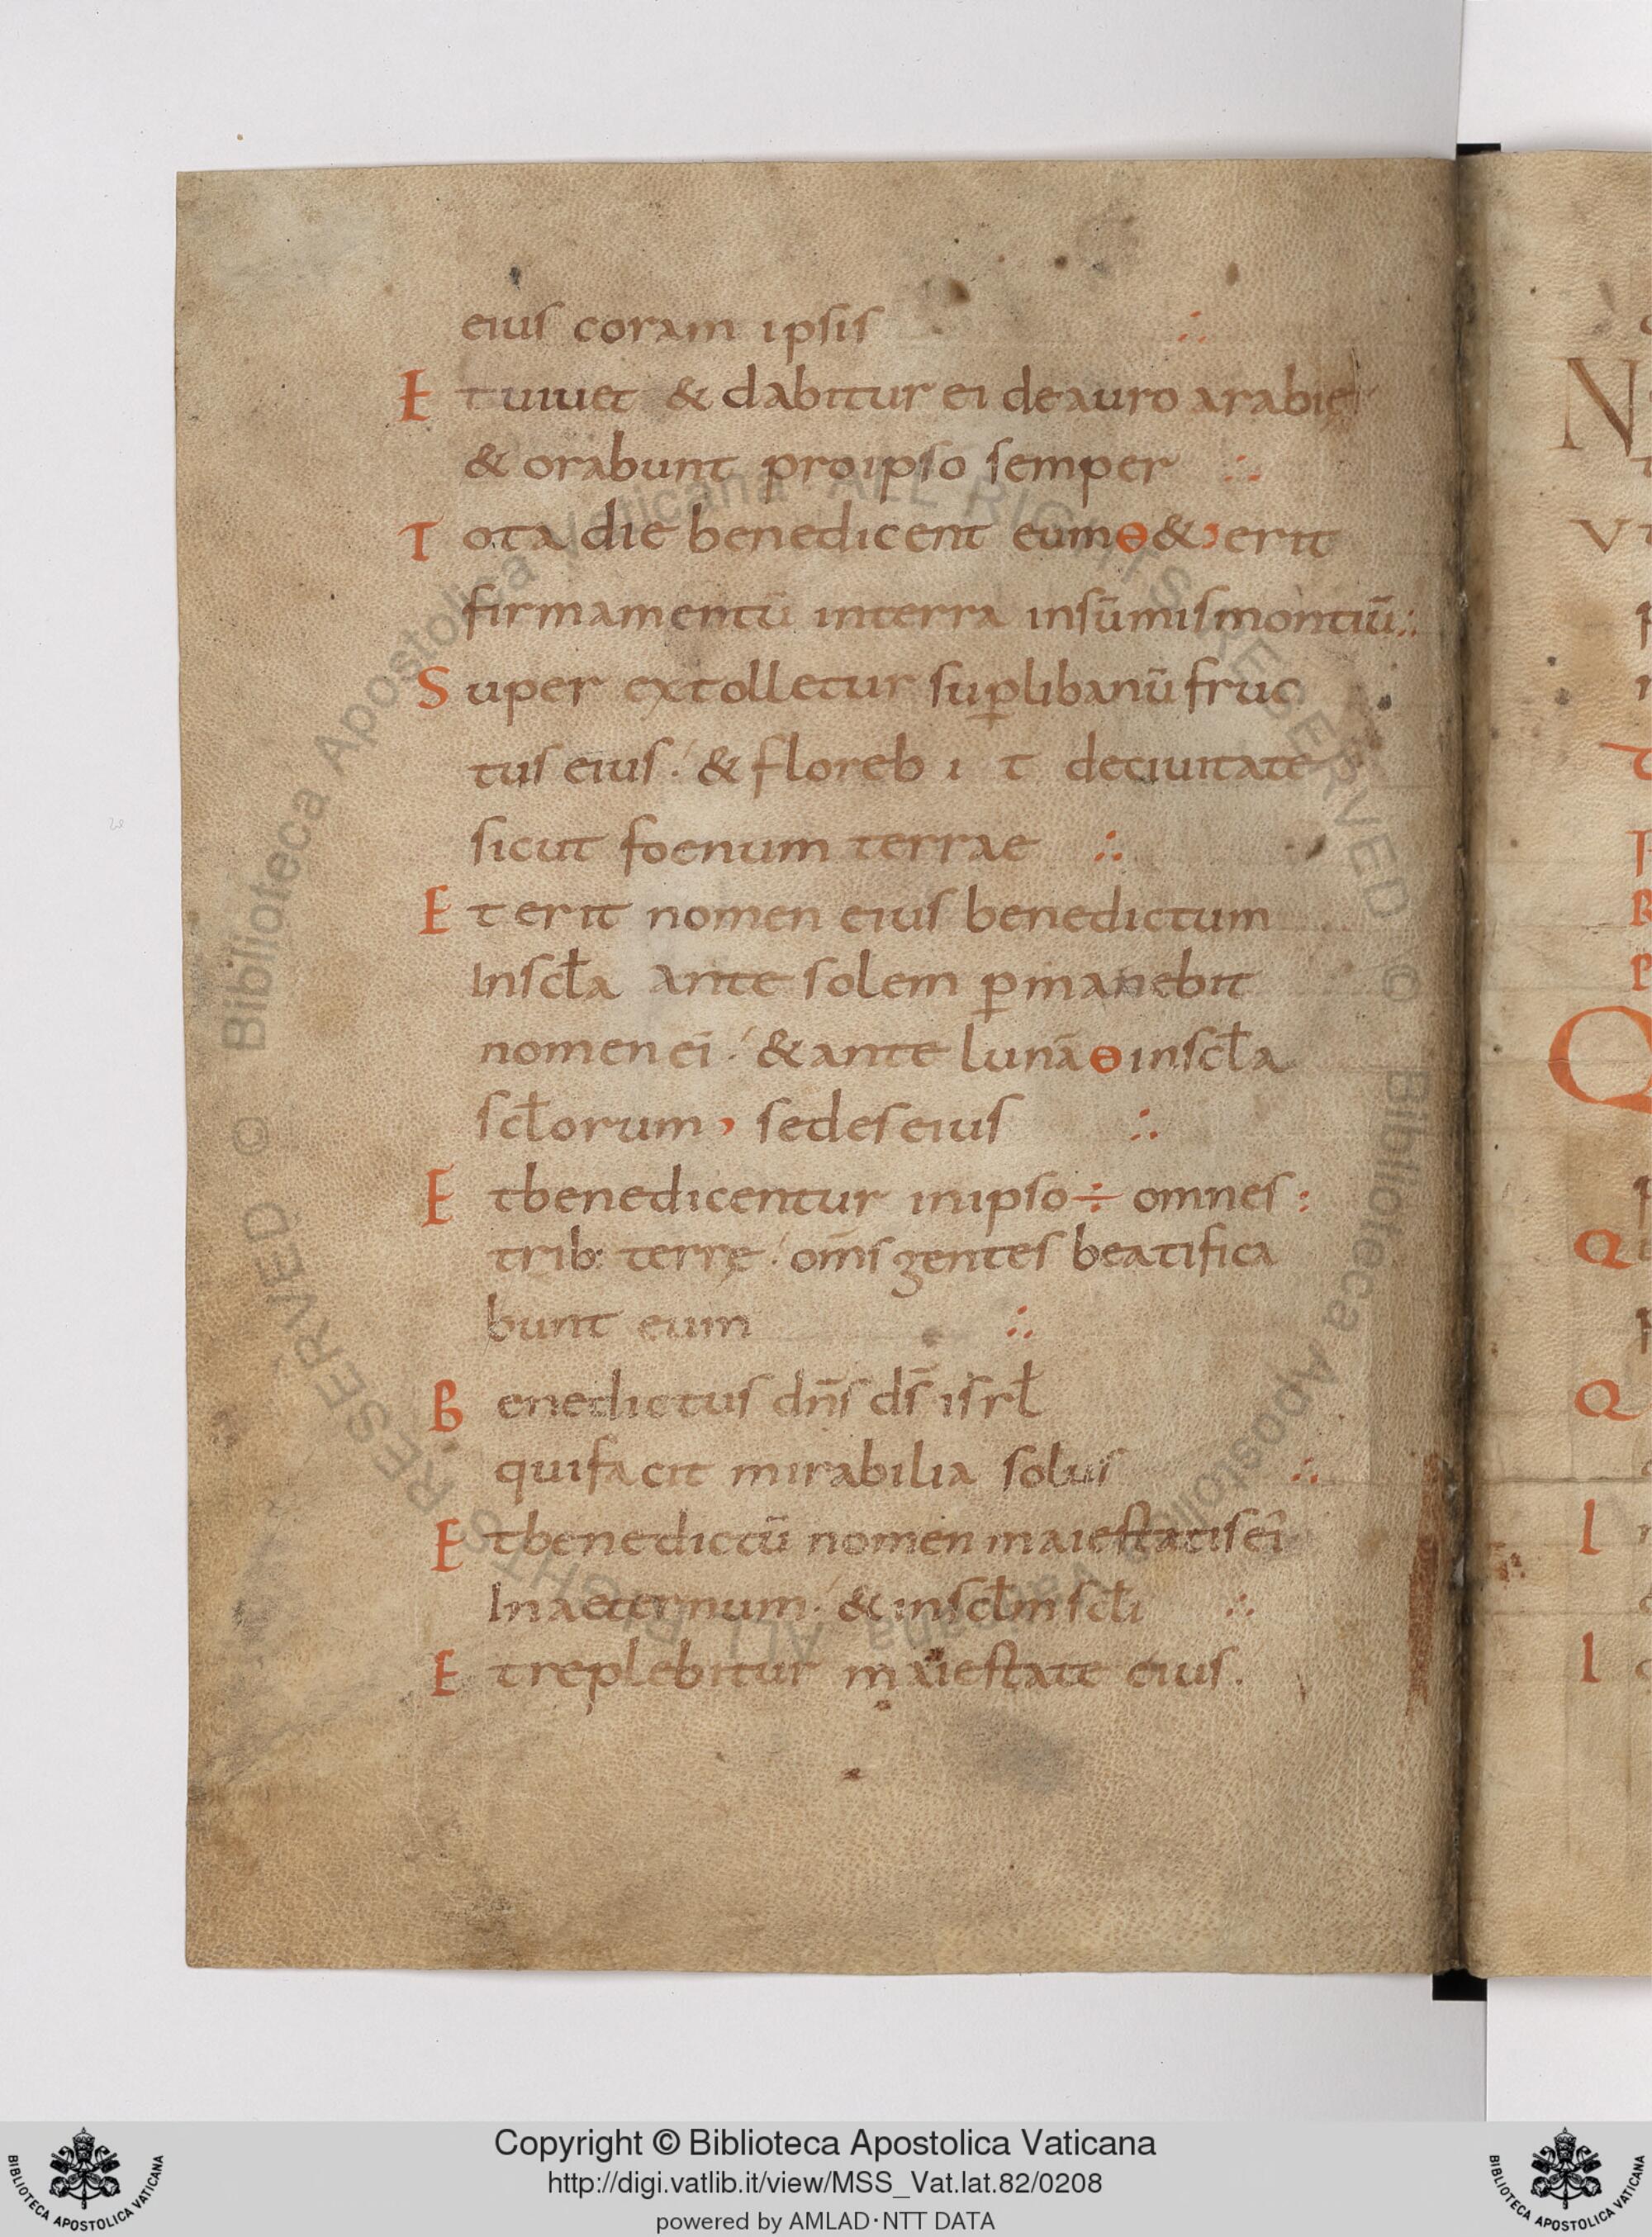 eius coram ipsis ∴
Et uiuet & dabitur ei deauro arabię
& orabunt proipso semper ∴
Tota die benedicent eum ɵ & ꝰ erit
firmamentū interra insūmismontiū ∴
Super extolletur suꝑlibanū fruc
tus eius. & floreb i t deciuitate
sicut foenum terrae ∴
Et erit nomen eius benedictum
Insc̄la Ante solem ꝑmanebit
nomen ei ̄. & ante lunā ɵ insc̄la
sc̄lorum , sedes eius ∴
Et benedicentur inipso ÷ omnes :
trib: terrę. om̄s gentes beatifica
bunt eum ∴
Benedictus dn̄s ds̄ isrł
quifacit mirabilia solus ∴
Et benedictū nomen maiestatis ei ̄
Inaeternum. & insc̄lm sc̄li ∴
Et replebitur maiestate eius.
N
V
T
B
P
Q
Q
Q
I
I
Copyright © Biblioteca Apostolica Vaticana
http://digi.vatlib.it/view/MSS_Vat.lat.82/0208
powered by AMLAD·NTT DATA
BIBLIOTECA APOSTOLICA VATICANA
BIBLIOTECA APOSTOLICA VATICANA
© Biblioteca Apostolica Vaticana · ALL RIGHTS RESERVED © Biblioteca Apostolica Vaticana · ALL RIGHTS RESERVED